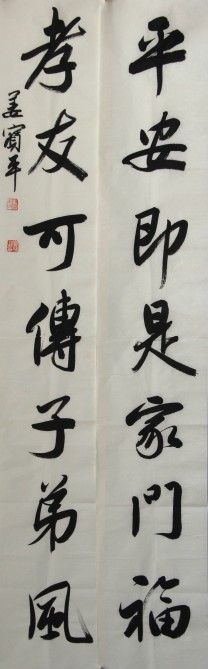 平安即是家門福
孝友可傳子弟風
姜寶平